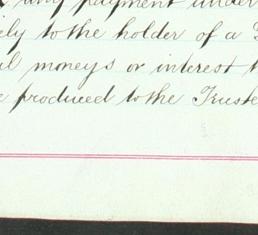 any payment under
ely to the holder of a
moneys or interest
produced to the Truste